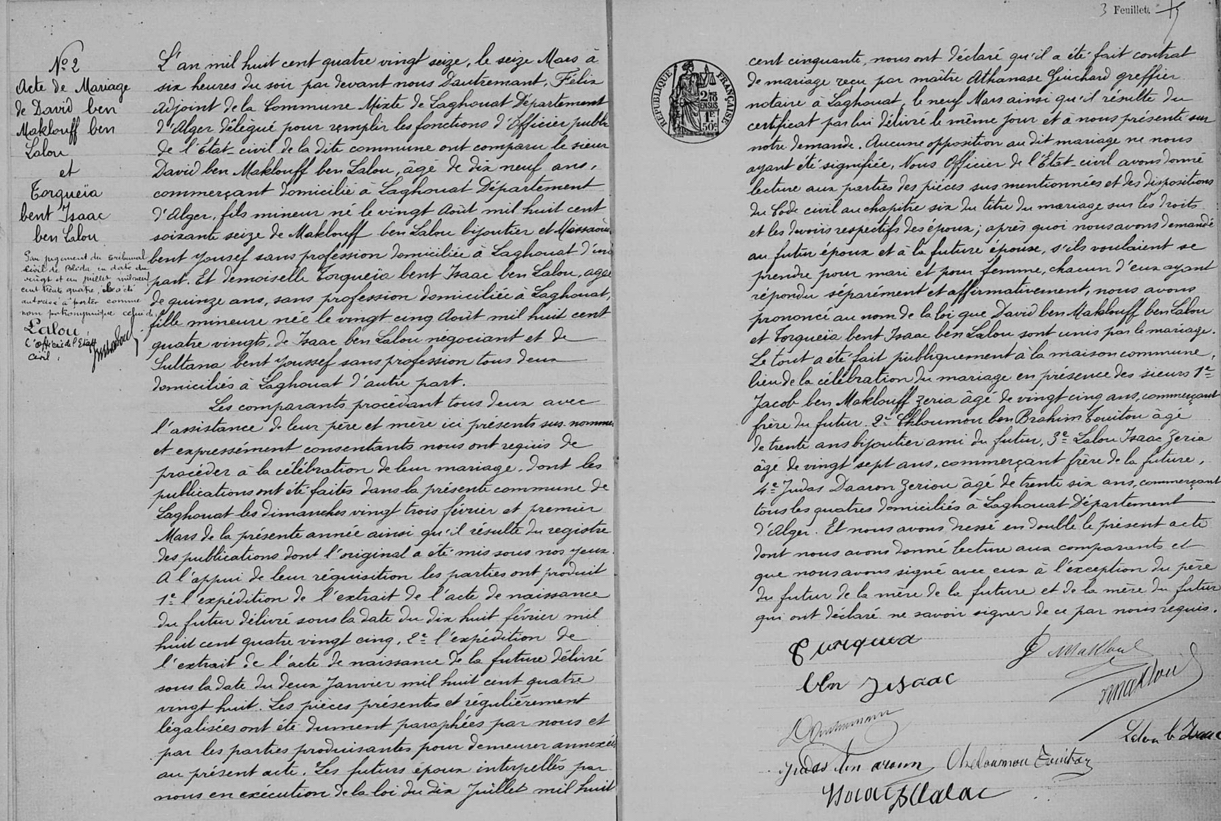 Nº 2
Acte de Mariage
de David ben
Maklouff ben
Lalou
et
Torqueïa
bent Isaac
ben Lalou
Par jugement du tribunal
civil de Blida en date du
vingt et un juillet mil neuf
cent trente quatre,
autorisé à porter comme
nom patronymique celui de
Lalou
L'officier de l'Etat
civil,
L'an mil huit cent quatre vingt seize, le seize Mars à
six heures du soir par devant nous Dautremant, Félix
Adjoint de la Commune Mixte de Laghouat Département
d'Alger délégué pour remplir les fonctions d'Officier public
de l'Etat-civil de la dite commune ont comparu le sieur
David ben Maklouff ben Lalou, âgé de dix neuf ans,
commerçant domicilié à Laghouat Département
d'Alger, fils mineur né le vingt Août mil huit cent
soixante seize de Maklouff ben Lalou bijoutier et Messaouda
bent Youssef sans profession domiciliée à Laghouat d'une
part. Et demoiselle Torqueia bent Isaac ben Lalou, agée
de quinze ans, sans profession domiciliée à Laghouat,
fille mineure née le vingt cinq Août mil huit cent
quatre vingts, de Isaac ben Lalou négociant et de
Sultana bent Youssef sans profession tous deux
domiciliés à Laghouat d'autre part.
Les comparants procédant tous deux avec
l'assistance de leur père et mère ici présents sus-nommés
et expressément consentants nous ont requis de
procéder à la célébration de leur mariage, dont les
publications ont été faites dans la présente commune de
Laghouat les dimanches vingt trois février et premier
Mars de la présente année ainsi qu'il résulte du registre
des publications dont l'original a été mis sous nos yeux.
A l'appui de leur réquisition les parties ont produit
1º l'expédition de l'extrait de l'acte de naissance
du futur délivré sous la date du dix huit février mil
huit cent quatre vingt cinq, 2º l'expédition de
l'extrait de l'acte de naissance de la future délivré
sous la date du deux Janvier mil huit cent quatre
vingt huit. Les pièces présentes et régulièrement
légalisées ont été dument paraphées par nous et
par les parties produisantes pour demeurer annexées
au présent acte. Les futurs époux interpellés par
nous en exécution de la loi du dix Juillet mil huit
3 Feuillet.
RÉPUBLIQUE FRANÇAISE
cent cinquante, nous ont déclaré qu'il a été fait contrat
de mariage reçu par maître Athanase Guichard greffier
notaire à Laghouat, le neuf Mars ainsi qu'il résulte du
certificat par lui délivré le même jour et à nous présenté sur
notre demande. Aucune opposition au dit mariage ne nous
ayant été signifiée, Nous Officier de l'Etat-civil avons donné
lecture aux parties des pièces sus mentionnées et des dispositions
du Code civil au chapitre six du titre du mariage sur les droits
et les devoirs respectifs des époux; après quoi nous avons demandé
au futur époux et à la future épouse, s'ils voulaient se
prendre pour mari et pour femme, chacun d'eux ayant
répondu séparément et affirmativement, nous avons
prononcé au nom de la loi que David ben Maklouff ben Lalou
et Torqueia bent Isaac ben Lalou sont unis par le mariage.
Le tout a été fait publiquement à la maison commune,
lieu de la célébration du mariage en présence des sieurs 1º
Jacob ben Maklouff Zeria âgé de vingt cinq ans, commerçant
frère du futur. 2º Chloumou ben Brahim Touitou âgé
de trente ans bijoutier ami du futur, 3º Lalou Isaac Zeria
âgé de vingt sept ans, commerçant frère de la future,
4º Judas Daaron Zeriou âgé de trente six ans, commerçant
tous les quatres domiciliés à Laghouat Département
d'Alger. Et nous avons dressé en double le présent acte
dont nous avons donné lecture aux comparants et
que nous avons signé avec eux à l'exception du père
du futur de la mère de la future et de la mère du futur
qui ont déclaré ne savoir signer de ce par nous requis.
Turqueia
ben Isaac
D Makloul
Makloul
Lalou b Isaac
Judas ben aroun
Chaloumou Touitou